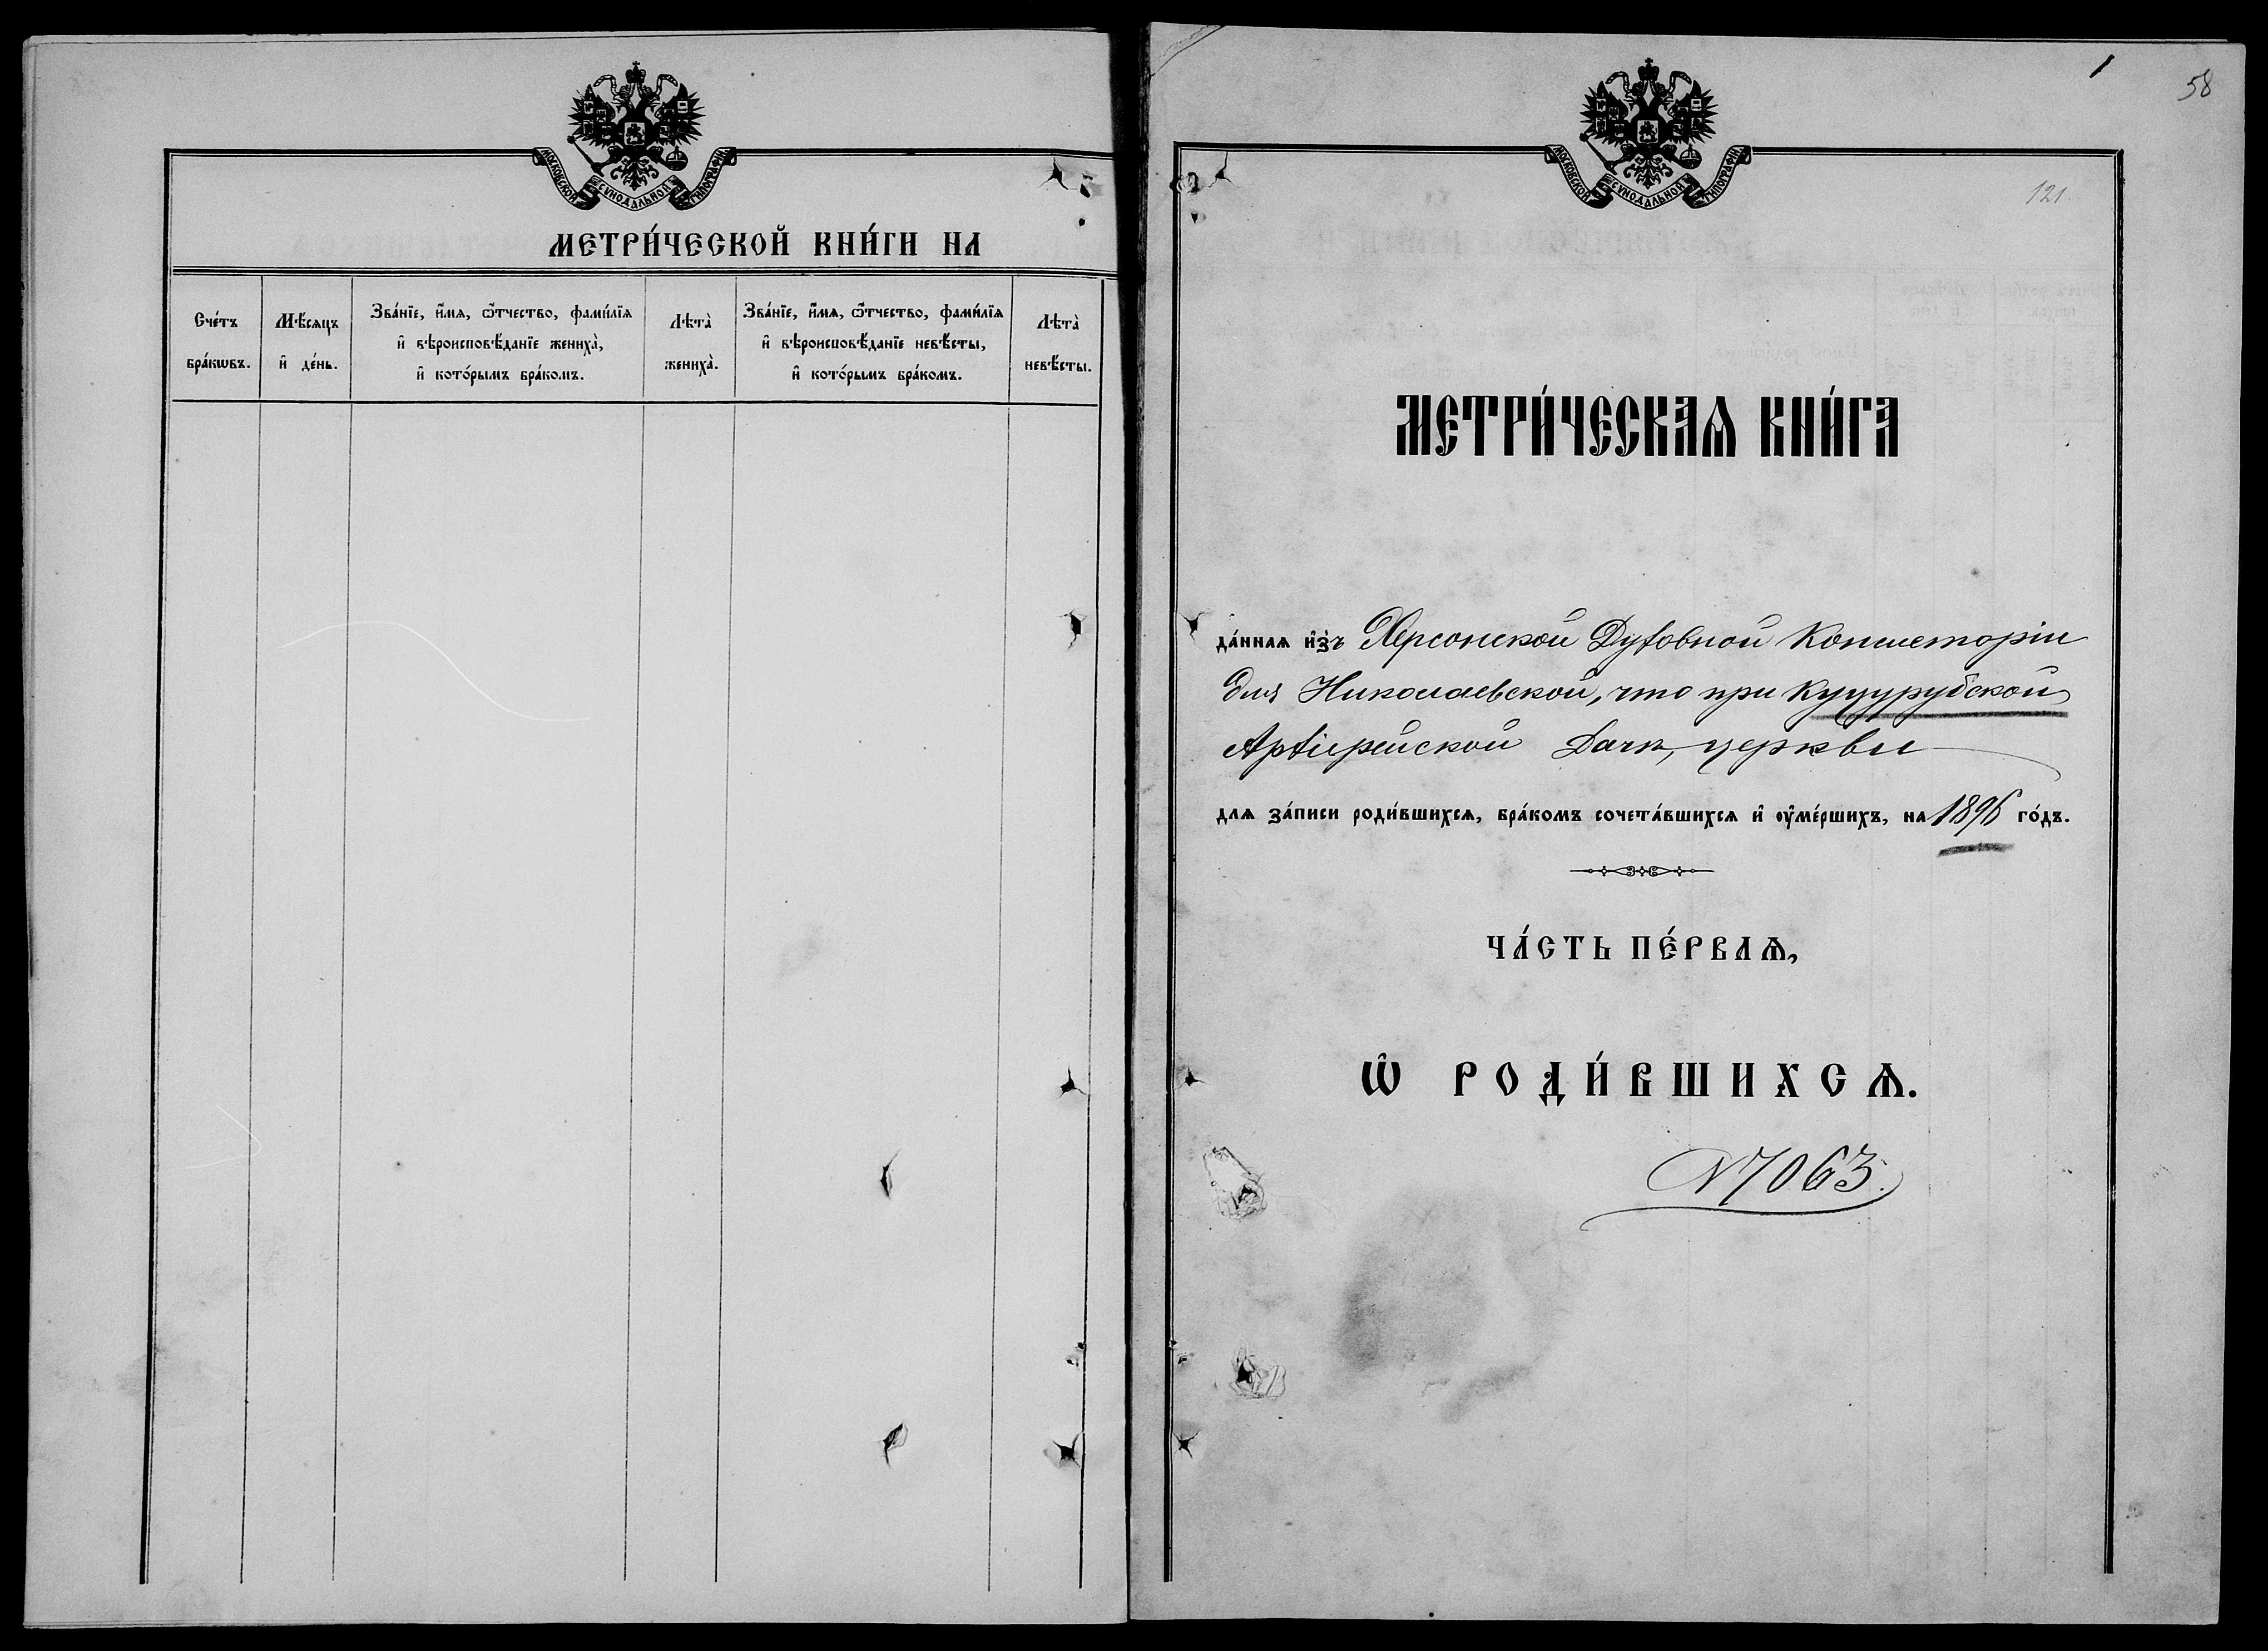 МОСКОВСКОЙ СѴНОДАЛЬНОЙ ТИПОГРАФІИ
МЕТРИ́ЧЕСКОЙ КНИ́ГИ НА
Сче́тъ бра́кѡвъ.
Мѣ́сяцъ и҆ де́нь.
Зва́нїе, и҆́мѧ, ѻ҆́тчество, фами́лїѧ и҆ вѣроисповѣ́данїе жениха̀, и҆ кото́рымъ бра́комъ.
Лѣта̀ жениха̀.
Зва́нїе, и҆́мѧ, ѻ҆́тчество, фами́лїѧ и҆ вѣроисповѣ́данїе невѣ́сты, и҆ кото́рымъ бра́комъ.
Лѣта̀ невѣ́сты.
1
58
МОСКОВСКОЙ СѴНОДАЛЬНОЙ ТИПОГРАФІИ
121
МЕТРИ́ЧЕСКАѦ КНИ́ГА
да́ннаѧ и҆зъ Херсонской Духовной Консисторіи
для Николаевской, что при Куцурубской
Архіерейской Дачѣ, церкви
длѧ за́писи роди́вшихсѧ, бра́комъ сочета́вшихсѧ и҆ ᲂу҆ме́ршихъ, на 1896 го́дъ.
ЧА́СТЬ ПЕ́РВАѦ,
Ѡ҆ РОДИ́ВШИХСѦ.
№ 7063.